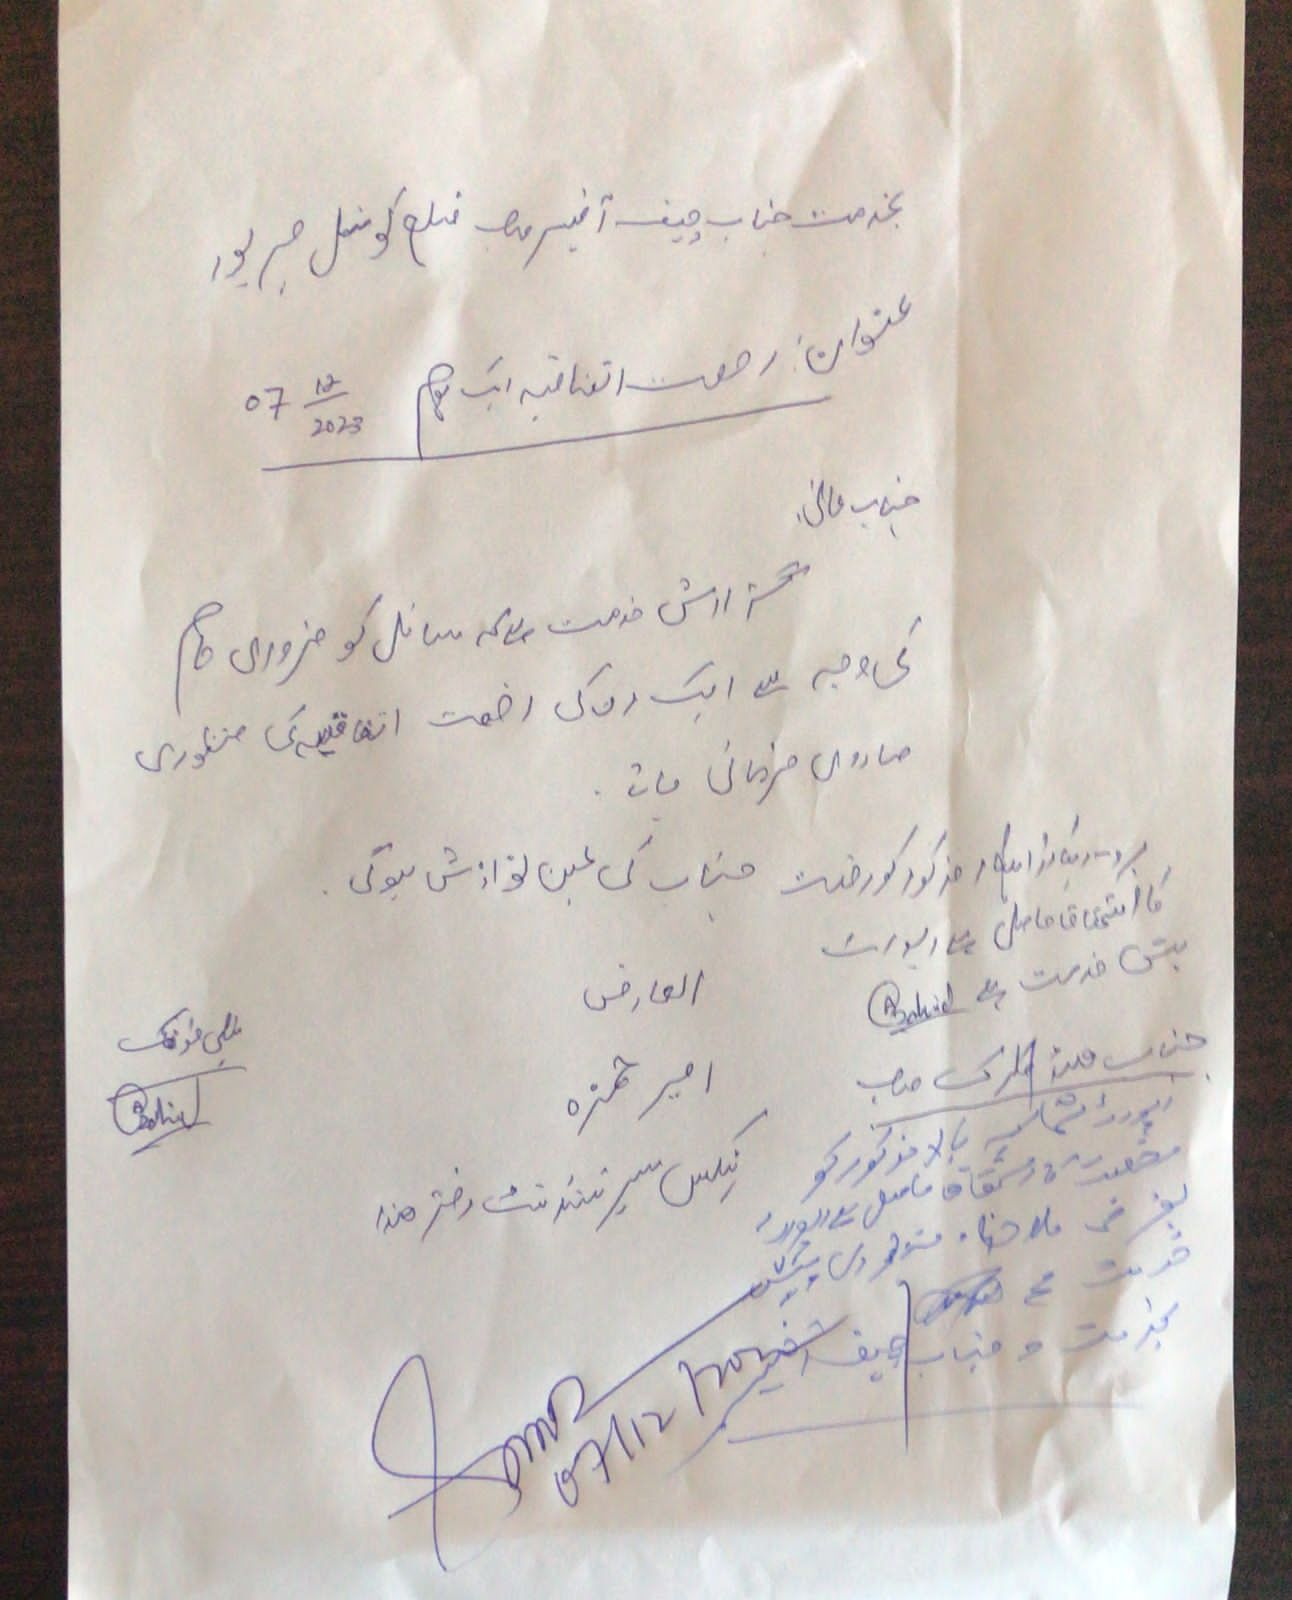 بخدمت جناب چیف آفیسر صاحب ضلع کونسل میرپور
عنوان: رخصت اتفاقیہ ایک یوم 07 12/2023
جناب عالی!
گزارش خدمت ہے کہ سائل کو ضروری کام
کی وجہ سے ایک دن کی رخصت اتفاقیہ کی منظوری
صادر فرمائی جائے۔
جناب کی عین نوازش ہوگی۔
العارض
امیر حمزہ
ٹیکس سپرنٹنڈنٹ دفتر ھذا
بروئے ریکارڈ اہلکار مذکور کو رخصت
کا استحقاق حاصل ہے رپورٹ
پیش خدمت ہے
جناب ہیڈ کلرک صاحب
بالا مذکور کو
رخصت استحقاق حاصل ہے رپورٹ
بغرض ملاحظہ منظوری پیش
خدمت ہے
بخدمت جناب چیف آفیسر
07/12/2023